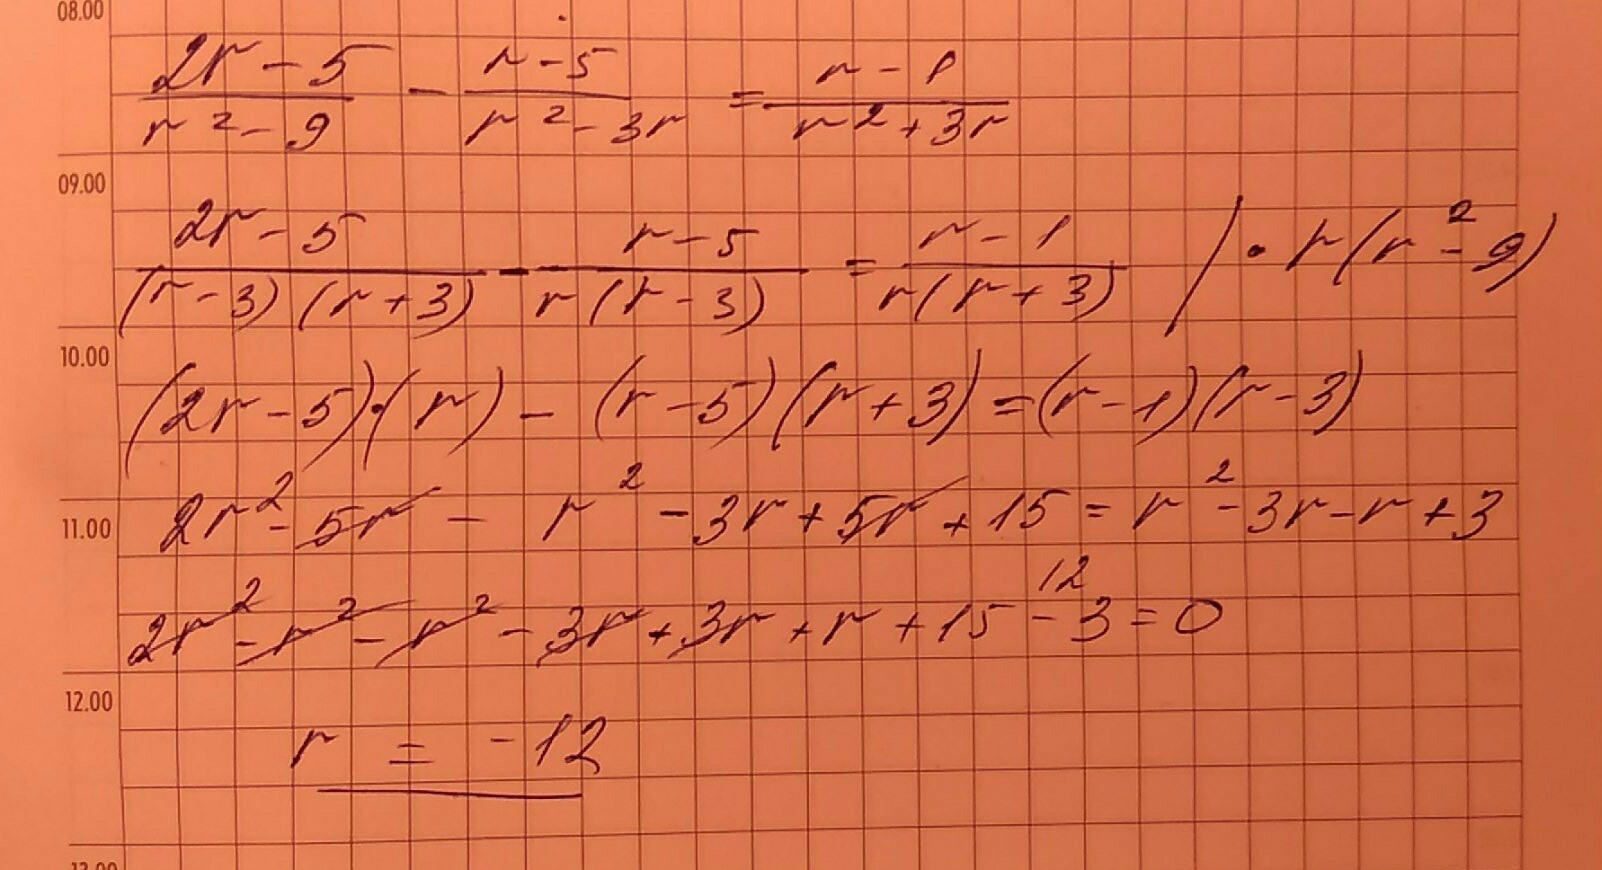 08.00
(2r - 5)/(r² - 9) - (r - 5)/(r² - 3r) = (r - 1)/(r² + 3r)
09.00
(2r - 5)/((r - 3)(r + 3)) - (r - 5)/(r(r - 3)) = (r - 1)/(r(r + 3)) / · r(r² - 9)
10.00
(2r - 5)·(r) - (r - 5)(r + 3) = (r - 1)(r - 3)
11.00
2r² - 5r - r² - 3r + 5r + 15 = r² - 3r - r + 3
12
2r² - r² - r² - 3r + 3r + r + 15 - 3 = 0
12.00
r = -12
13.00